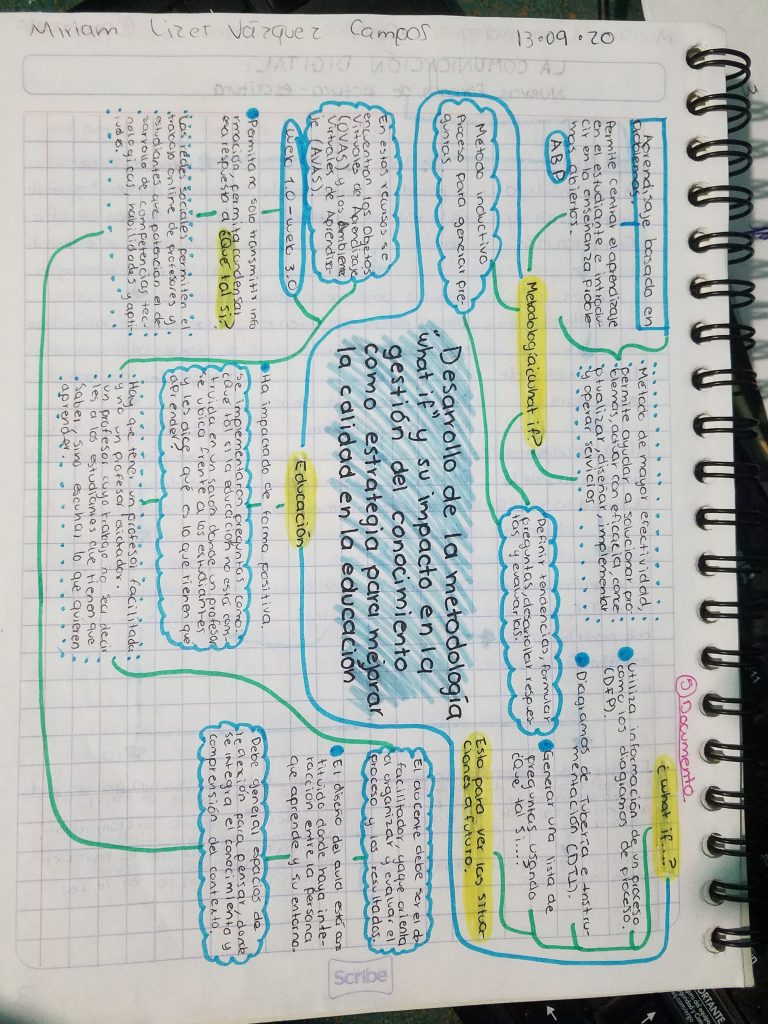 Miriam Lizet Vázquez Campos
13·09·20
LA COMUNICACIÓN DIGITAL:
⑤ Documento
Desarrollo de la metodología
"what if" y su impacto en la
gestión del conocimiento
como estrategia para mejorar
la calidad en la educación
Metodología ¿what if?
Aprendizaje basado en
problemas.
Permite centrar el aprendizaje
en el estudiante e introdu-
cir en la enseñanza proble-
mas abiertos.
ABP
Método de mayor efectividad,
permite ayudar a solucionar pro-
blemas, actuar con eficacia, conce-
ptualizar, diseñar, implementar
y operar servicios.
Método inductivo
Proceso para generar pre-
guntas.
Definir tendencias, formular
preguntas, desarrollar respues-
tas y evaluarlas.
¿what if....?
Utiliza información de un proceso
como los diagramas de proceso.
(DFP).
Diagramas de Tubería e Instru-
mentación (DTI).
Generar una lista de
preguntas usando
¿Qué tal si....
Esto para ver las situa-
ciones a futuro.
Educación
En estos recursos se
encuentran los Objetos
Virtuales de Aprendizaje
(OVAS) y los Ambientes
Virtuales de Aprendiza-
je (AVAS).
web 1.0 - web 3.0
Permita no solo transmitir info
rmación, permita condensar
esa respuesta al ¿Qué tal si?
Las redes sociales permiten el
trabajo online de profesores y
estudiantes que potencian el de-
sarrollo de competencias tec-
nológicas, habilidades y apti-
tudes.
Ha impactado de forma positiva.
se implementaron preguntas como:
¿qué tal si la educación no está cons-
truida en un salón donde un profesor
se ubica frente a los estudiantes
y les dice qué es lo que tienen que
aprender?
Hay que tener un profesor facilitador
y no un profesor dictador.
un profesor cuyo trabajo no sea decir
les a los estudiantes que tienen que
saber, sino escuchar lo que quieren
aprender.
El docente debe ser el
facilitador, ya que orienta
al organizar y evaluar el
proceso y los resultados.
El diseño del aula está cons
tituido donde haya inte-
racción entre la persona
que aprende y su entorno.
Debe generar espacios de
reflexión para pensar, donde
se integra el conocimiento y
comprensión del contexto.
Scribe